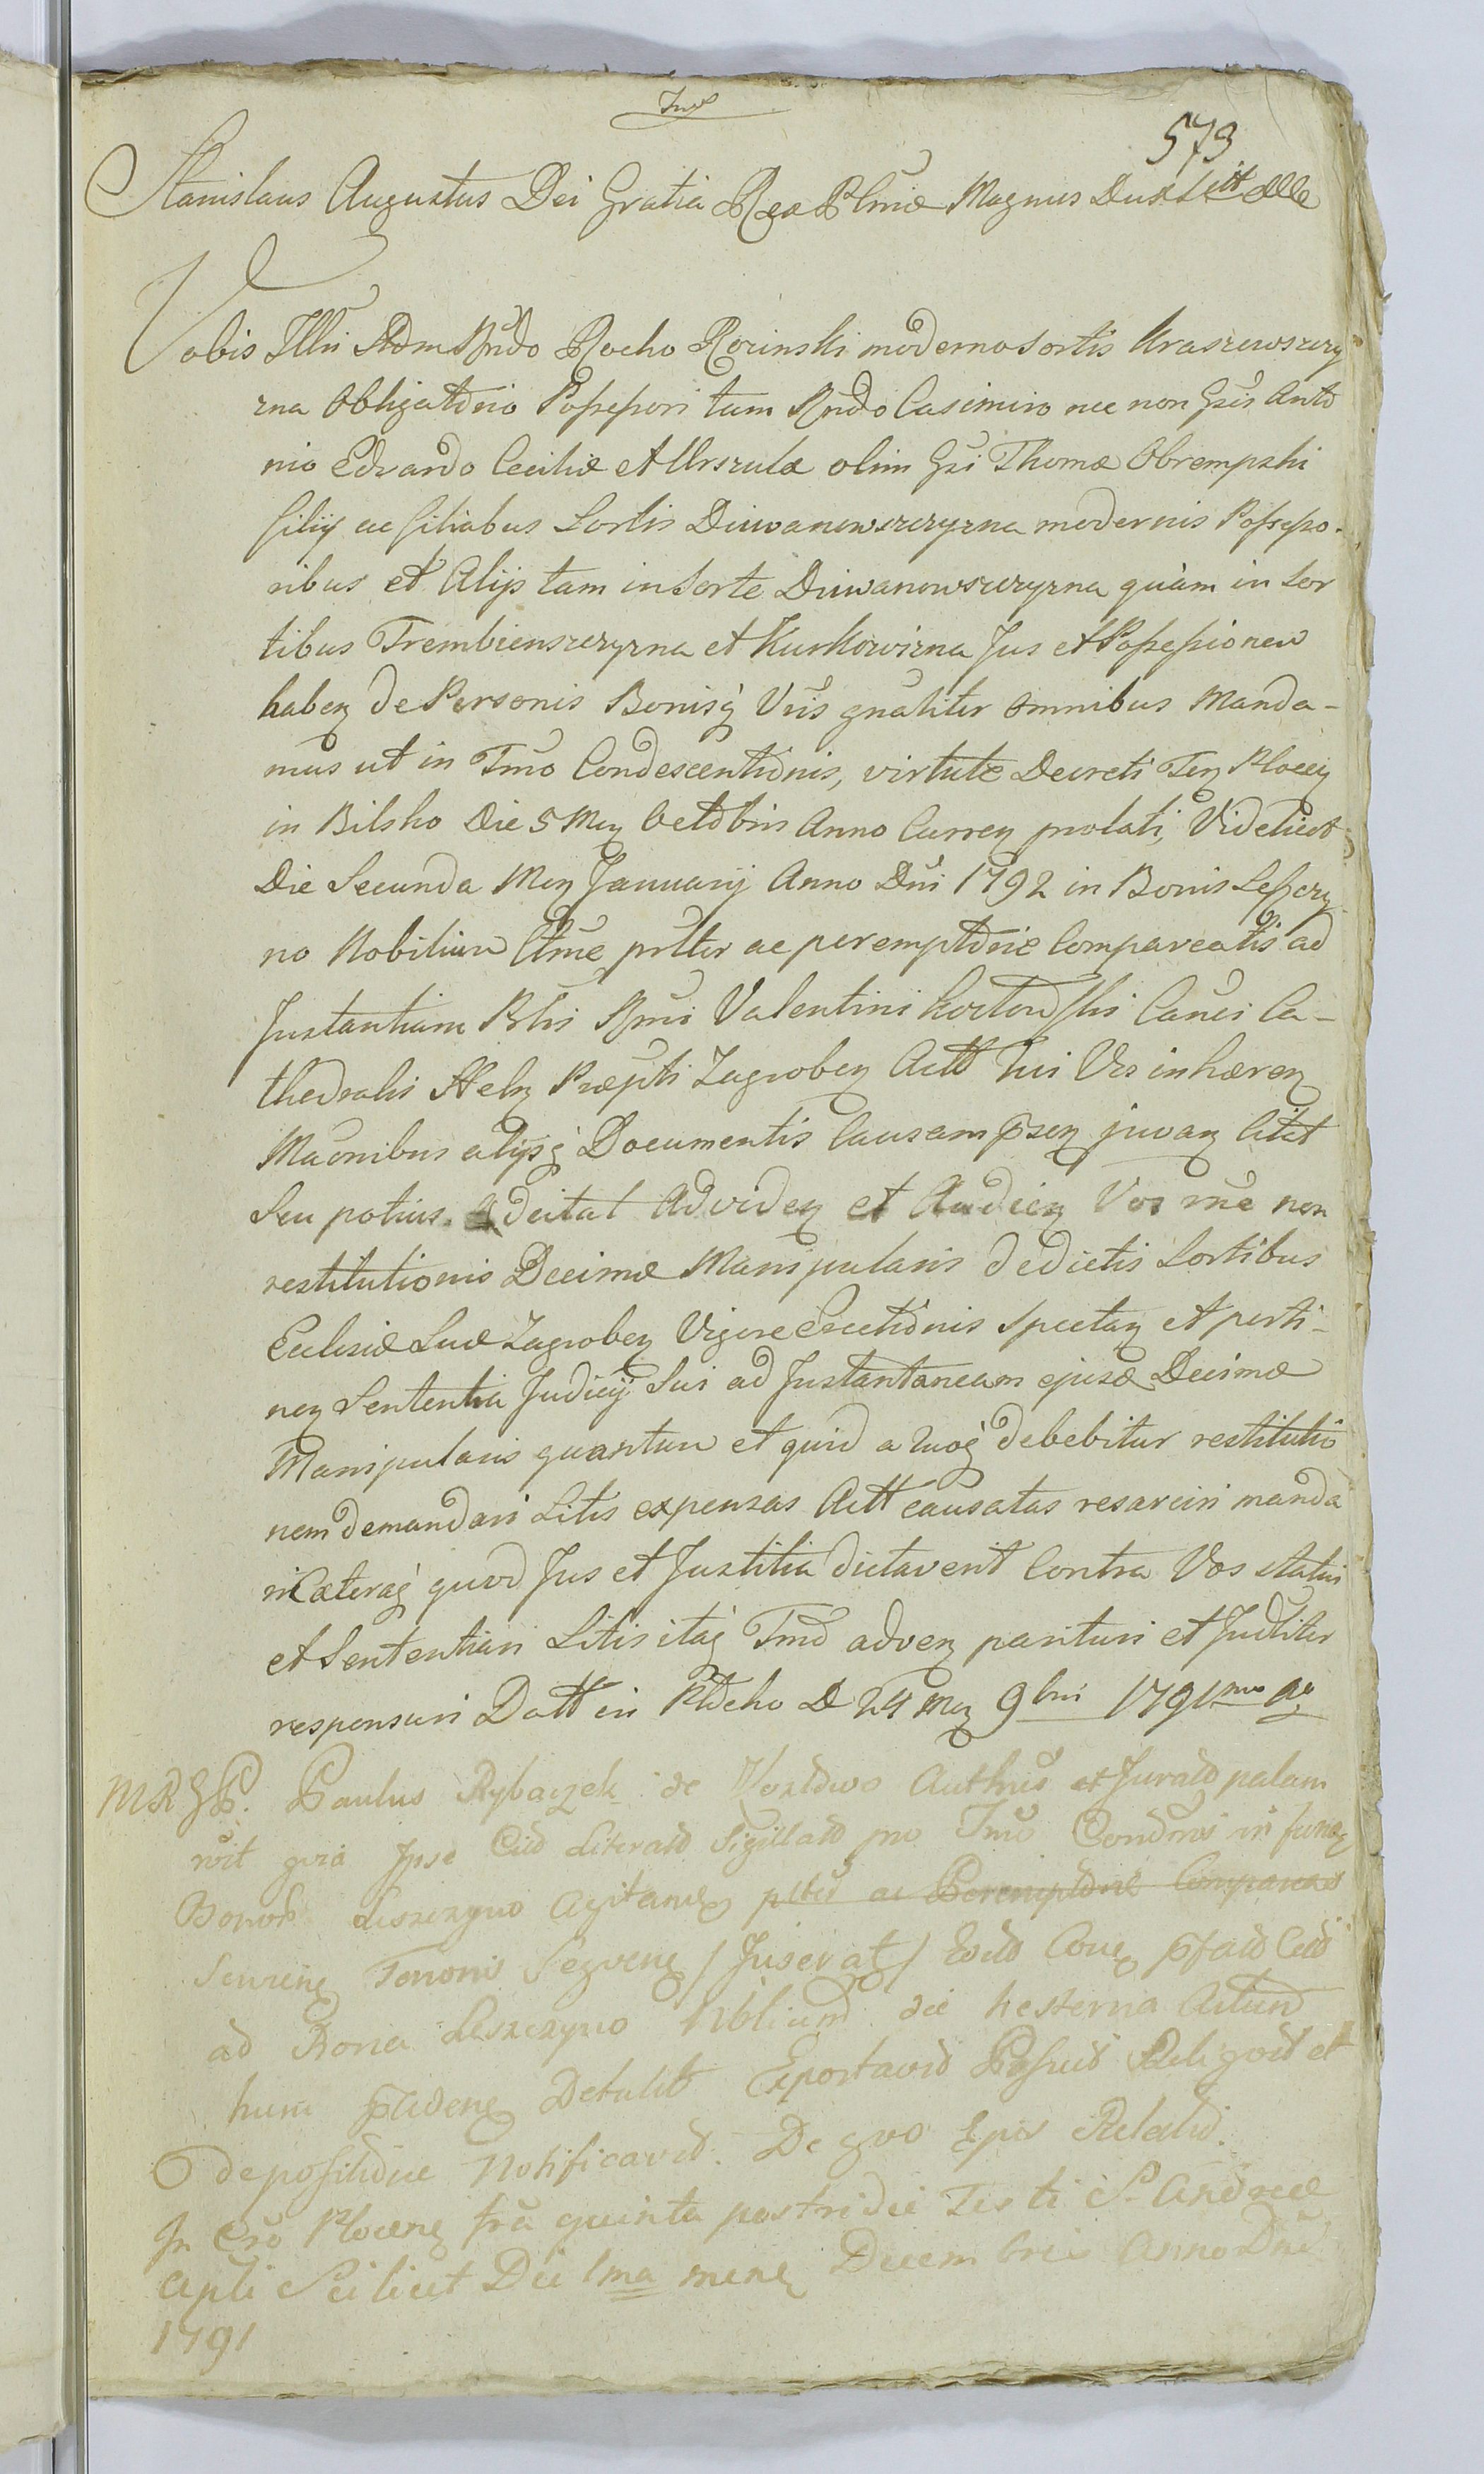 573
Stanislaus Augustus Dei Gratia Rex Plniæ Magnus Dux Litt
Vobis Illri Adm Rndo Rocho Rozinski moderno Sortis Kraszewszczy
zna Obligatorio Possessori tum Rndo Casimiro nec non Gsis Anto
nio Edvardo Ceciliæ et Urszulæ olim Gsi Thomæ Obrempski
filiis ac filiabus Sortis Diwanowszczyzna modernis Possesso-
ribus et Alijs tam in Sorte Diwanowszczyzna quàm in Sor
tibus Trembienszczyzna et Kurkowizna Jus et Possessionem
haben de Personis Bonisq Vris gnaliter omnibus Manda-
mus ut in Tmo Condescentionis, virtute Decreti Ten Plocen
in Bilsko Die 5 Men Octobris Anno Curren prolati, Videlicet
Die Secunda Men Januarij Anno Dni 1792 in Bonis Leszczy
no Nobilium prltr ac peremptorie Compareatis ad
Instantiam Rlis Rmi Valentini Canci Ca-
thedralis Præpti Zagroben Actt Qui Vos inhæren
Maonibus alijsq Documentis Causam psen juvan Citat
Seu potius Adcitat Ad viden et Audien Vos rne non
restitutionis Decimæ Manipularis de dictis Sortibus
Ecclesiæ Suæ Zagroben Vigore Erectionis Spectan et perti-
nen Sententia Judicij Sui ad Instantaneam ejusd Decimæ
Manipularis quantum et quid a quoq debebitur restitutio
nem demandari Litis expensas Actt causatas resarciri manda
ri Cæteraq quod Jus et Justitia dictaverit Contra Vos statui
et Sententiari Litis itaq Tmo adven parituri et Judltiter
responsuri Datt in Plocko D 24 Men 9bris 1791mo Ao
MRGP. Paulus Rybaczek de Authus et Jurato palam
rvit quia Ipse Litterato Sigillato pro Tmo Condnis in fun
Bonor Leszczyno Agitan ac Peremptorie
Tenoris Seqven / Inserat /
ad Bona Leszczyno Nblium die hesterna
hum Detulit Exportavit Posuit Reliqvit et
O depositione Notificavit. De qvo Ejus Relatio.
In Cro Plocen fra quinta postridie Festi S. Andreæ
Apli Scilicet Die 1ma mens Decembris Anno Dni
1791